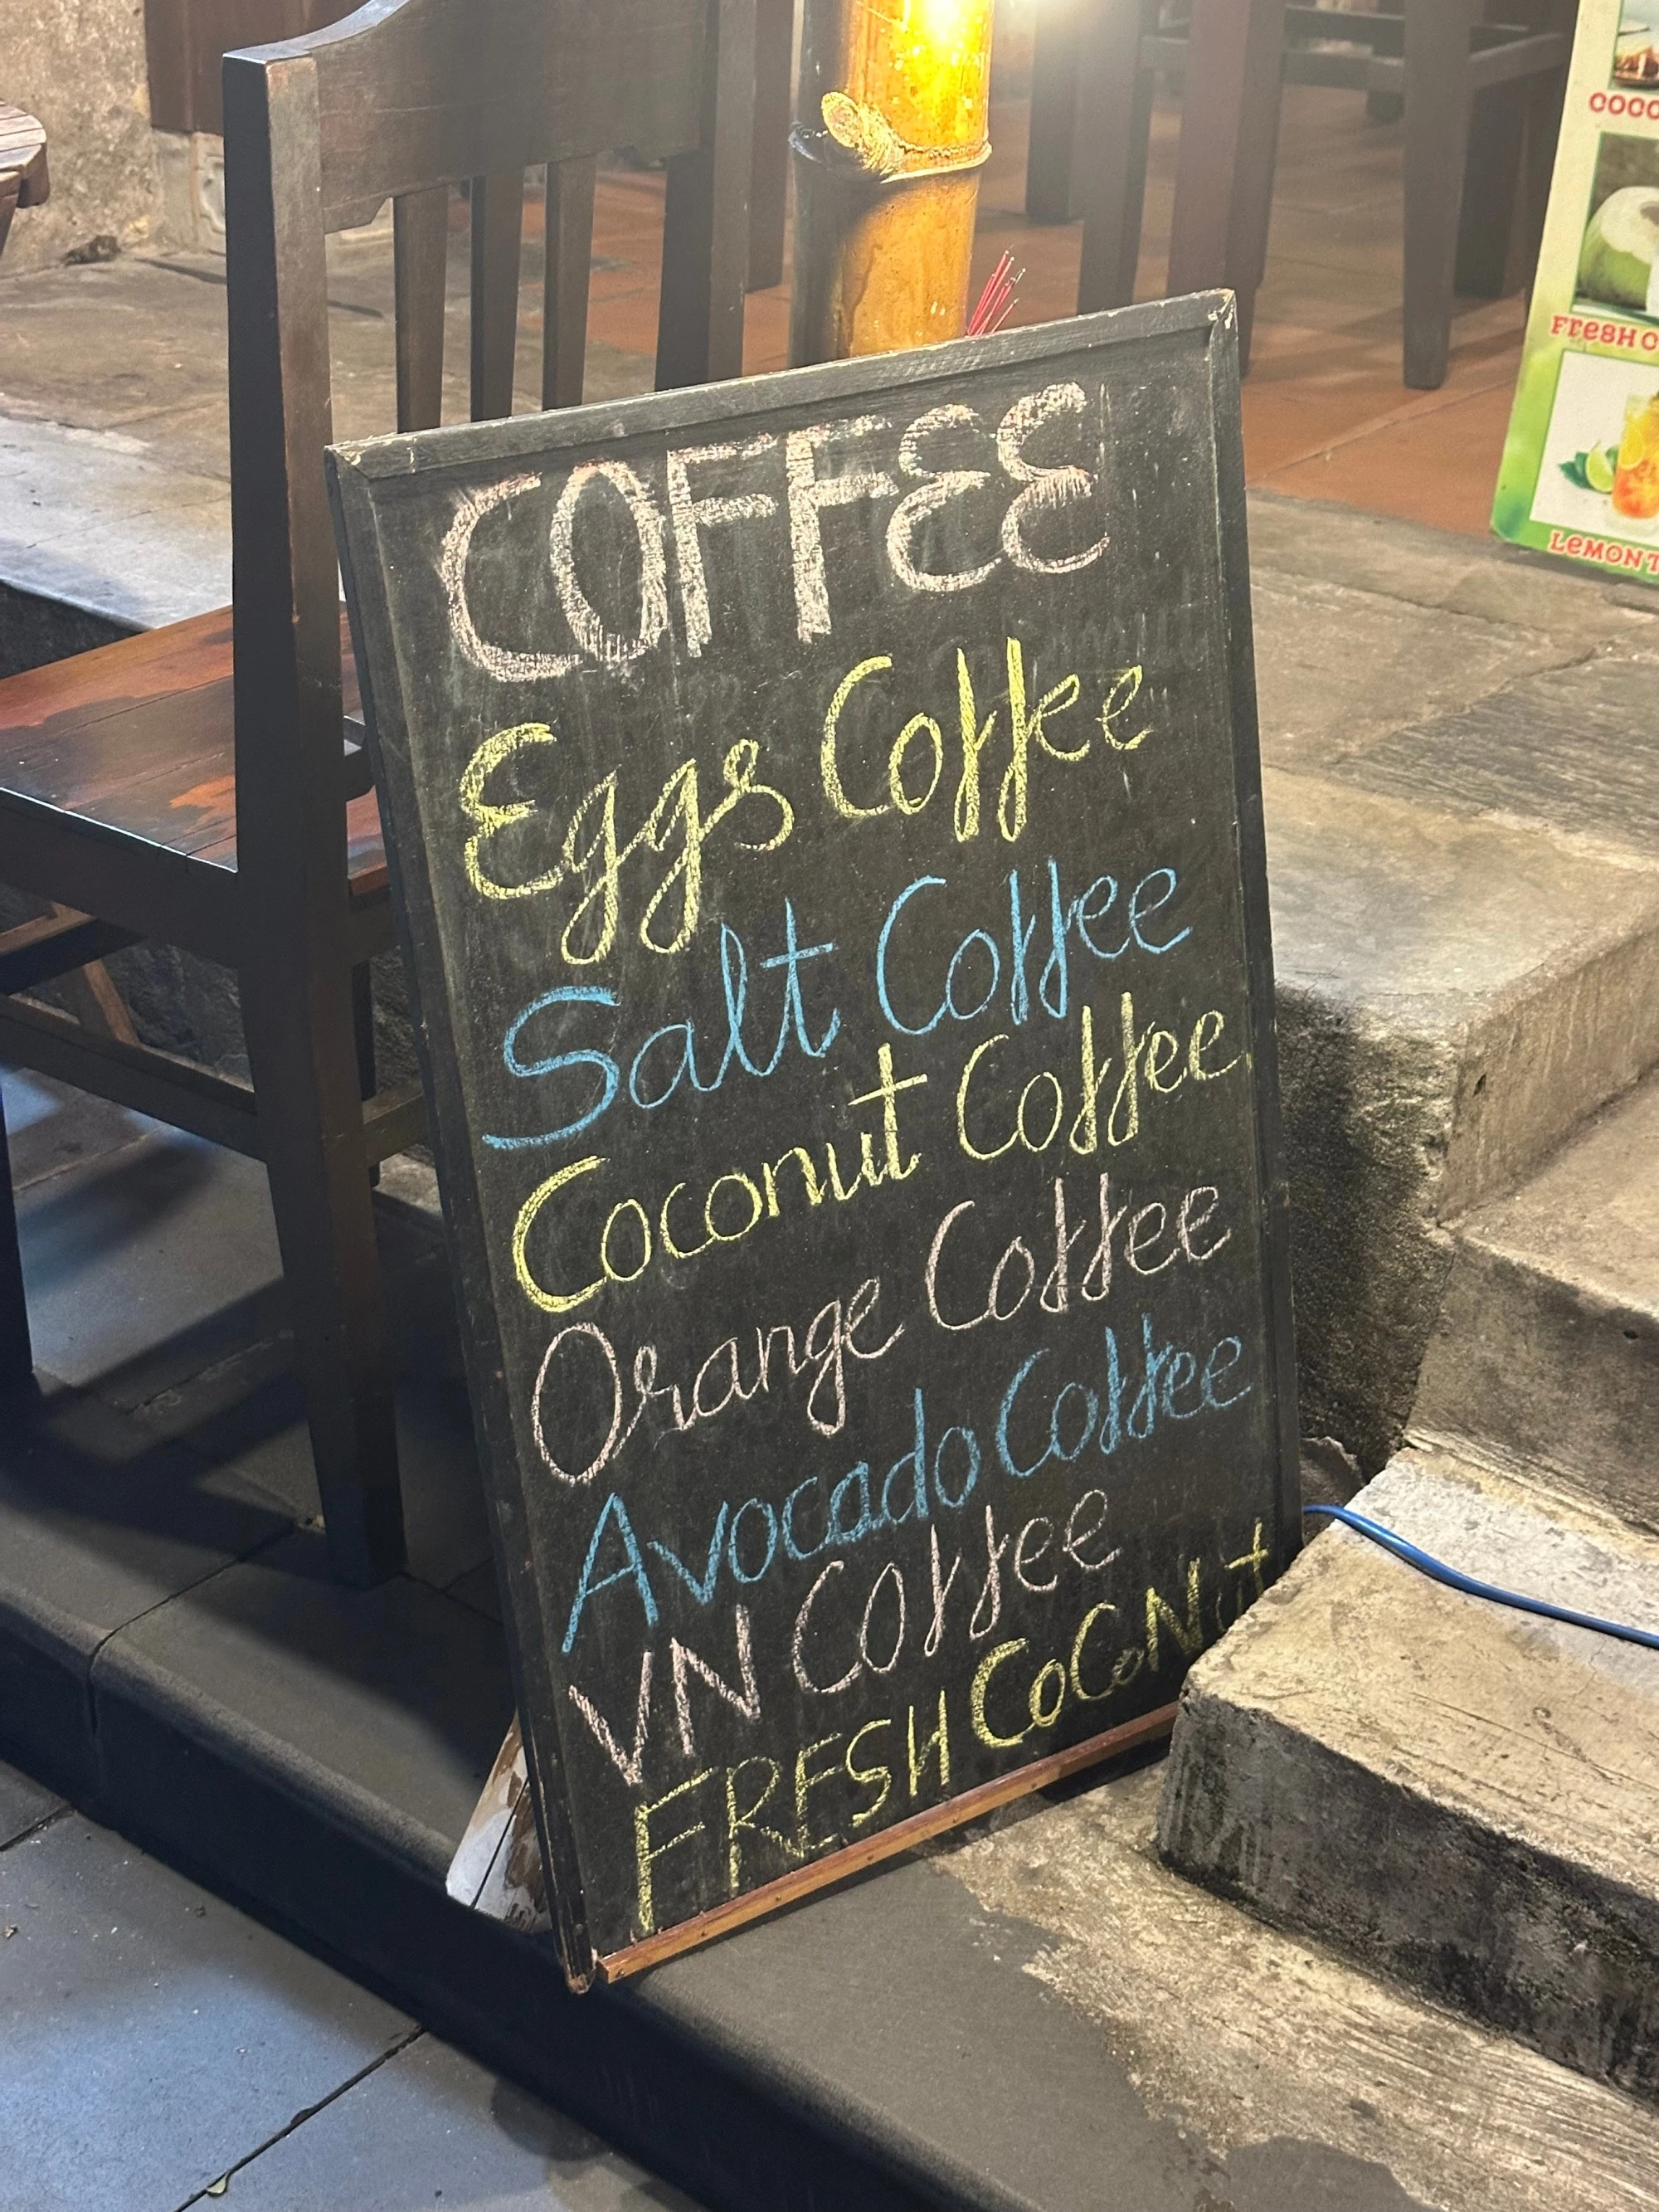 COFFEE
Eggs Coffee
Salt Coffee
Coconut Coffee
Orange Coffee
Avocado Coffee
VN Coffee
FRESH CoCoNut
COCO
FRESH C
LEMON T